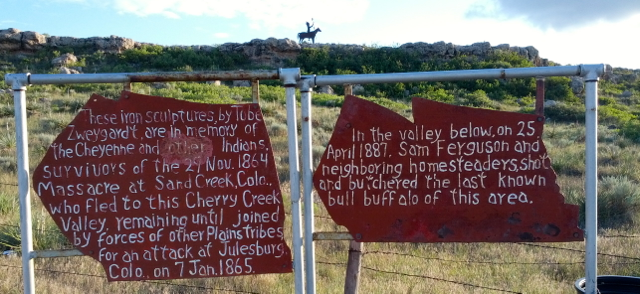 These iron sculptures, by Tobe
Zweygardt, are in memory of
the Cheyenne and other Indians,
survivors of the 29 Nov. 1864
Massacre at Sand Creek, Colo.,
who fled to this Cherry Creek
Valley, remaining until joined
by forces of other Plains tribes
for an attack at Julesburg,
Colo., on 7 Jan. 1865.
In the valley below, on 25
April 1887, Sam Ferguson and
neighboring homesteaders, shot
and butchered the last known
bull buffalo of this area.